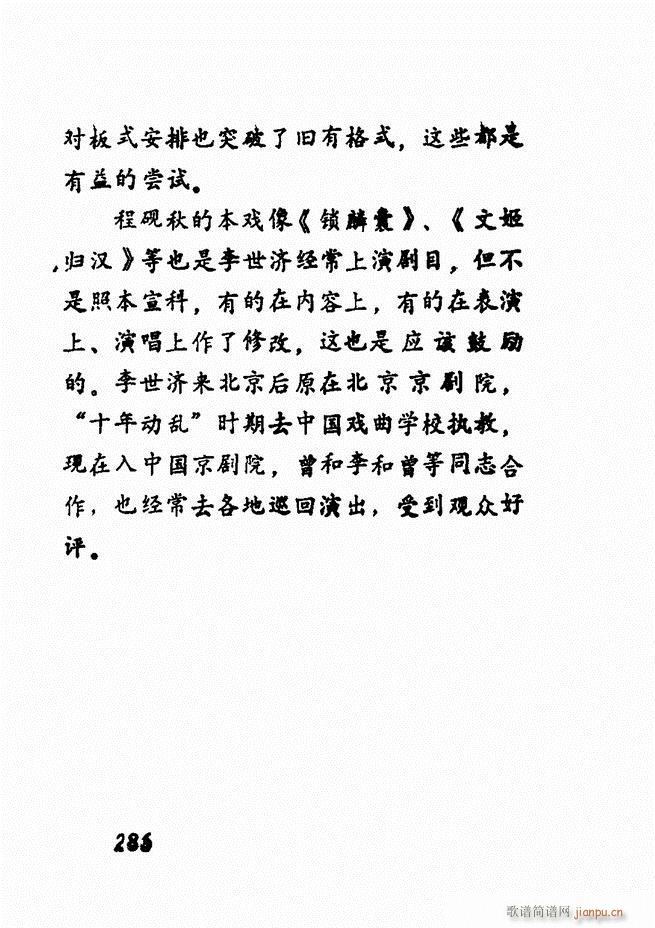 对板式安排也突破了旧有格式，这些都是
有益的尝试。
程砚秋的本戏像《锁麟囊》、《文姬
归汉》等也是李世济经常上演剧目，但不
是照本宣科，有的在内容上，有的在表演
上、演唱上作了修改，这也是应该鼓励
的。李世济来北京后原在北京京剧院，
“十年动乱”时期去中国戏曲学校执教，
现在入中国京剧院，曾和李和曾等同志合
作，也经常去各地巡回演出，受到观众好
评。
286
歌谱简谱网 jianpu.cn